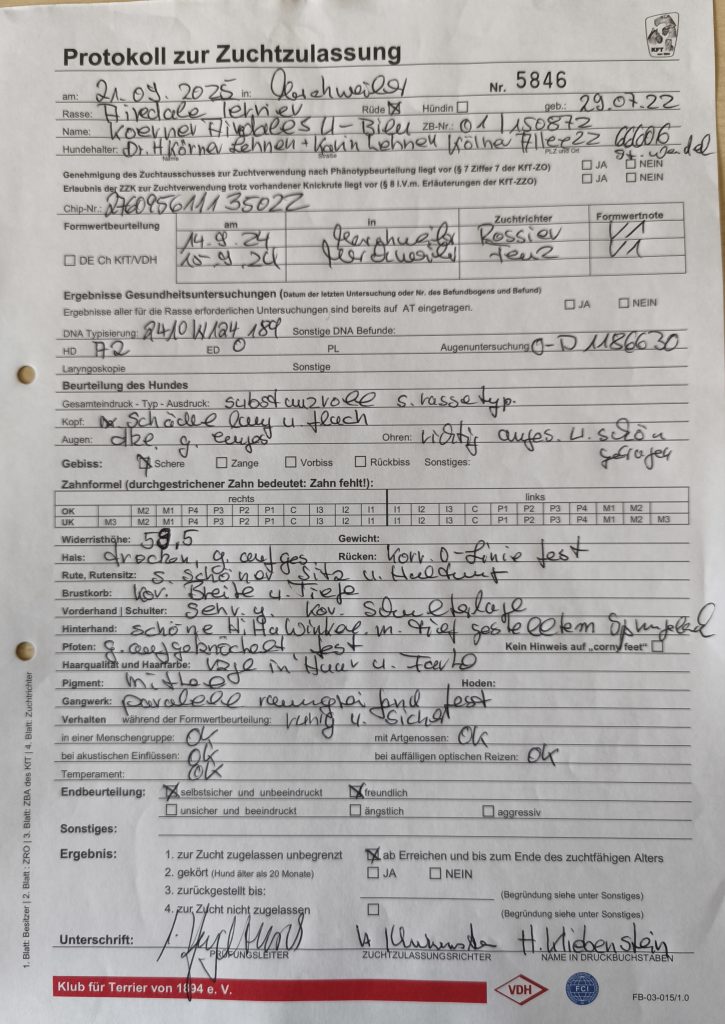 Protokoll zur Zuchtzulassung
KFT
am: 21.09.2025 in: Merchweiler Nr. 5846
Rasse: Airedale Terrier Rüde Hündin geb.: 29.07.22
Name: Koerner Airedales U- ZB-Nr.: 01/150872
Hundehalter: Dr. H. Körner Lehnen + Karin Lehnen Kölner Allee 22 66606
Name Straße PLZ und Ort St. Wendel
Genehmigung des Zuchtausschusses zur Zuchtverwendung nach Phänotypbeurteilung liegt vor (§ 7 Ziffer 7 der KfT-ZO) JA NEIN
Erlaubnis der ZZK zur Zuchtverwendung trotz vorhandener Knickrute liegt vor (§ 8 i.V.m. Erläuterungen der KfT-ZZO) JA NEIN
Chip-Nr.: 276095611135022
Formwertbeurteilung am in Zuchtrichter Formwertnote
14.9.24 Merchweiler Rossier V1
DE Ch KfT/VDH 15.9.24 Merchweiler V1
Ergebnisse Gesundheitsuntersuchungen (Datum der letzten Untersuchung oder Nr. des Befundbogens und Befund)
Ergebnisse aller für die Rasse erforderlichen Untersuchungen sind bereits auf AT eingetragen. JA NEIN
DNA Typisierung: 2410W124189 Sonstige DNA Befunde:
HD A2 ED 0 PL Augenuntersuchung O-D 1186630
Laryngoskopie Sonstige
Beurteilung des Hundes
Gesamteindruck - Typ - Ausdruck: substanzvoll s. rassetyp.
Kopf: Schädel lang u flach
Augen: dkl. g. Ohren: richtig anges. u. schön
getragen
Gebiss: Schere Zange Vorbiss Rückbiss Sonstiges:
Zahnformel (durchgestrichener Zahn bedeutet: Zahn fehlt!):
rechts links
OK M2 M1 P4 P3 P2 P1 C I3 I2 I1 I1 I2 I3 C P1 P2 P3 P4 M1 M2
UK M3 M2 M1 P4 P3 P2 P1 C I3 I2 I1 I1 I2 I3 C P1 P2 P3 P4 M1 M2 M3
Widerristhöhe: 59,5 Gewicht:
Hals: trocken, g. aufges Rücken: Korr. O-Linie fest
Rute, Rutensitz: s. schöner Sitz u. Haltung
Brustkorb: kor. Breite u. Tiefe
Vorderhand | Schulter: sehr g. kor. Schulterlage
Hinterhand: schöne Hi.Ha.Winkel. m. tief gestelltem Sprunggelenk
Pfoten: g. aufgeknöchelt, fest Kein Hinweis auf „corny feet“
Haarqualität und Haarfarbe: in Haar u. Farbe
Pigment: Mittel Hoden:
Gangwerk: parallel raumgreifend fest
Verhalten während der Formwertbeurteilung: ruhig u. sicher
in einer Menschengruppe: OK mit Artgenossen: OK
bei akustischen Einflüssen: OK bei auffälligen optischen Reizen: OK
Temperament: OK
Endbeurteilung: selbstsicher und unbeeindruckt freundlich
unsicher und beeindruckt ängstlich aggressiv
Sonstiges:
Ergebnis: 1. zur Zucht zugelassen unbegrenzt ab Erreichen und bis zum Ende des zuchtfähigen Alters
2. gekört (Hund älter als 20 Monate) JA NEIN
3. zurückgestellt bis: (Begründung siehe unter Sonstiges)
4. zur Zucht nicht zugelassen (Begründung siehe unter Sonstiges)
Unterschrift: H. Kliebenstein
PRÜFUNGSLEITER ZUCHTZULASSUNGSRICHTER NAME IN DRUCKBUCHSTABEN
Klub für Terrier von 1894 e. V. VDH FCI FB-03-015/1.0
1. Blatt: Besitzer | 2. Blatt: ZRO | 3. Blatt: ZBA des KfT | 4. Blatt: Zuchtrichter